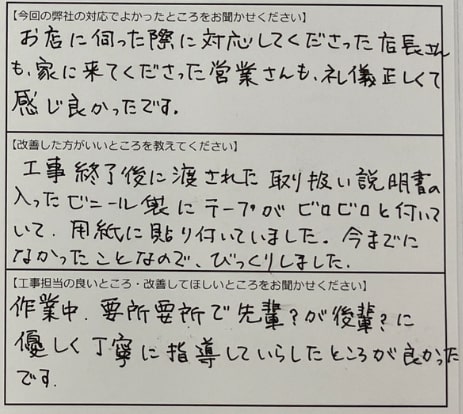 【今回の弊社の対応でよかったところをお聞かせください】
お店に伺った際に対応してくださった店長さん
も、家に来てくださった営業さんも、礼儀正しくて
感じ良かったです。
【改善した方がいいところを教えてください】
工事終了後に渡された取り扱い説明書の
入ったビニール袋にテープがビロビロと付いて
いて、用紙に貼り付いていました。今までに
なかったことなので、びっくりしました。
【工事担当の良いところ・改善してほしいところをお聞かせください】
作業中、要所要所で先輩?が後輩?に
優しく丁寧に指導していらしたところが良かった
です.